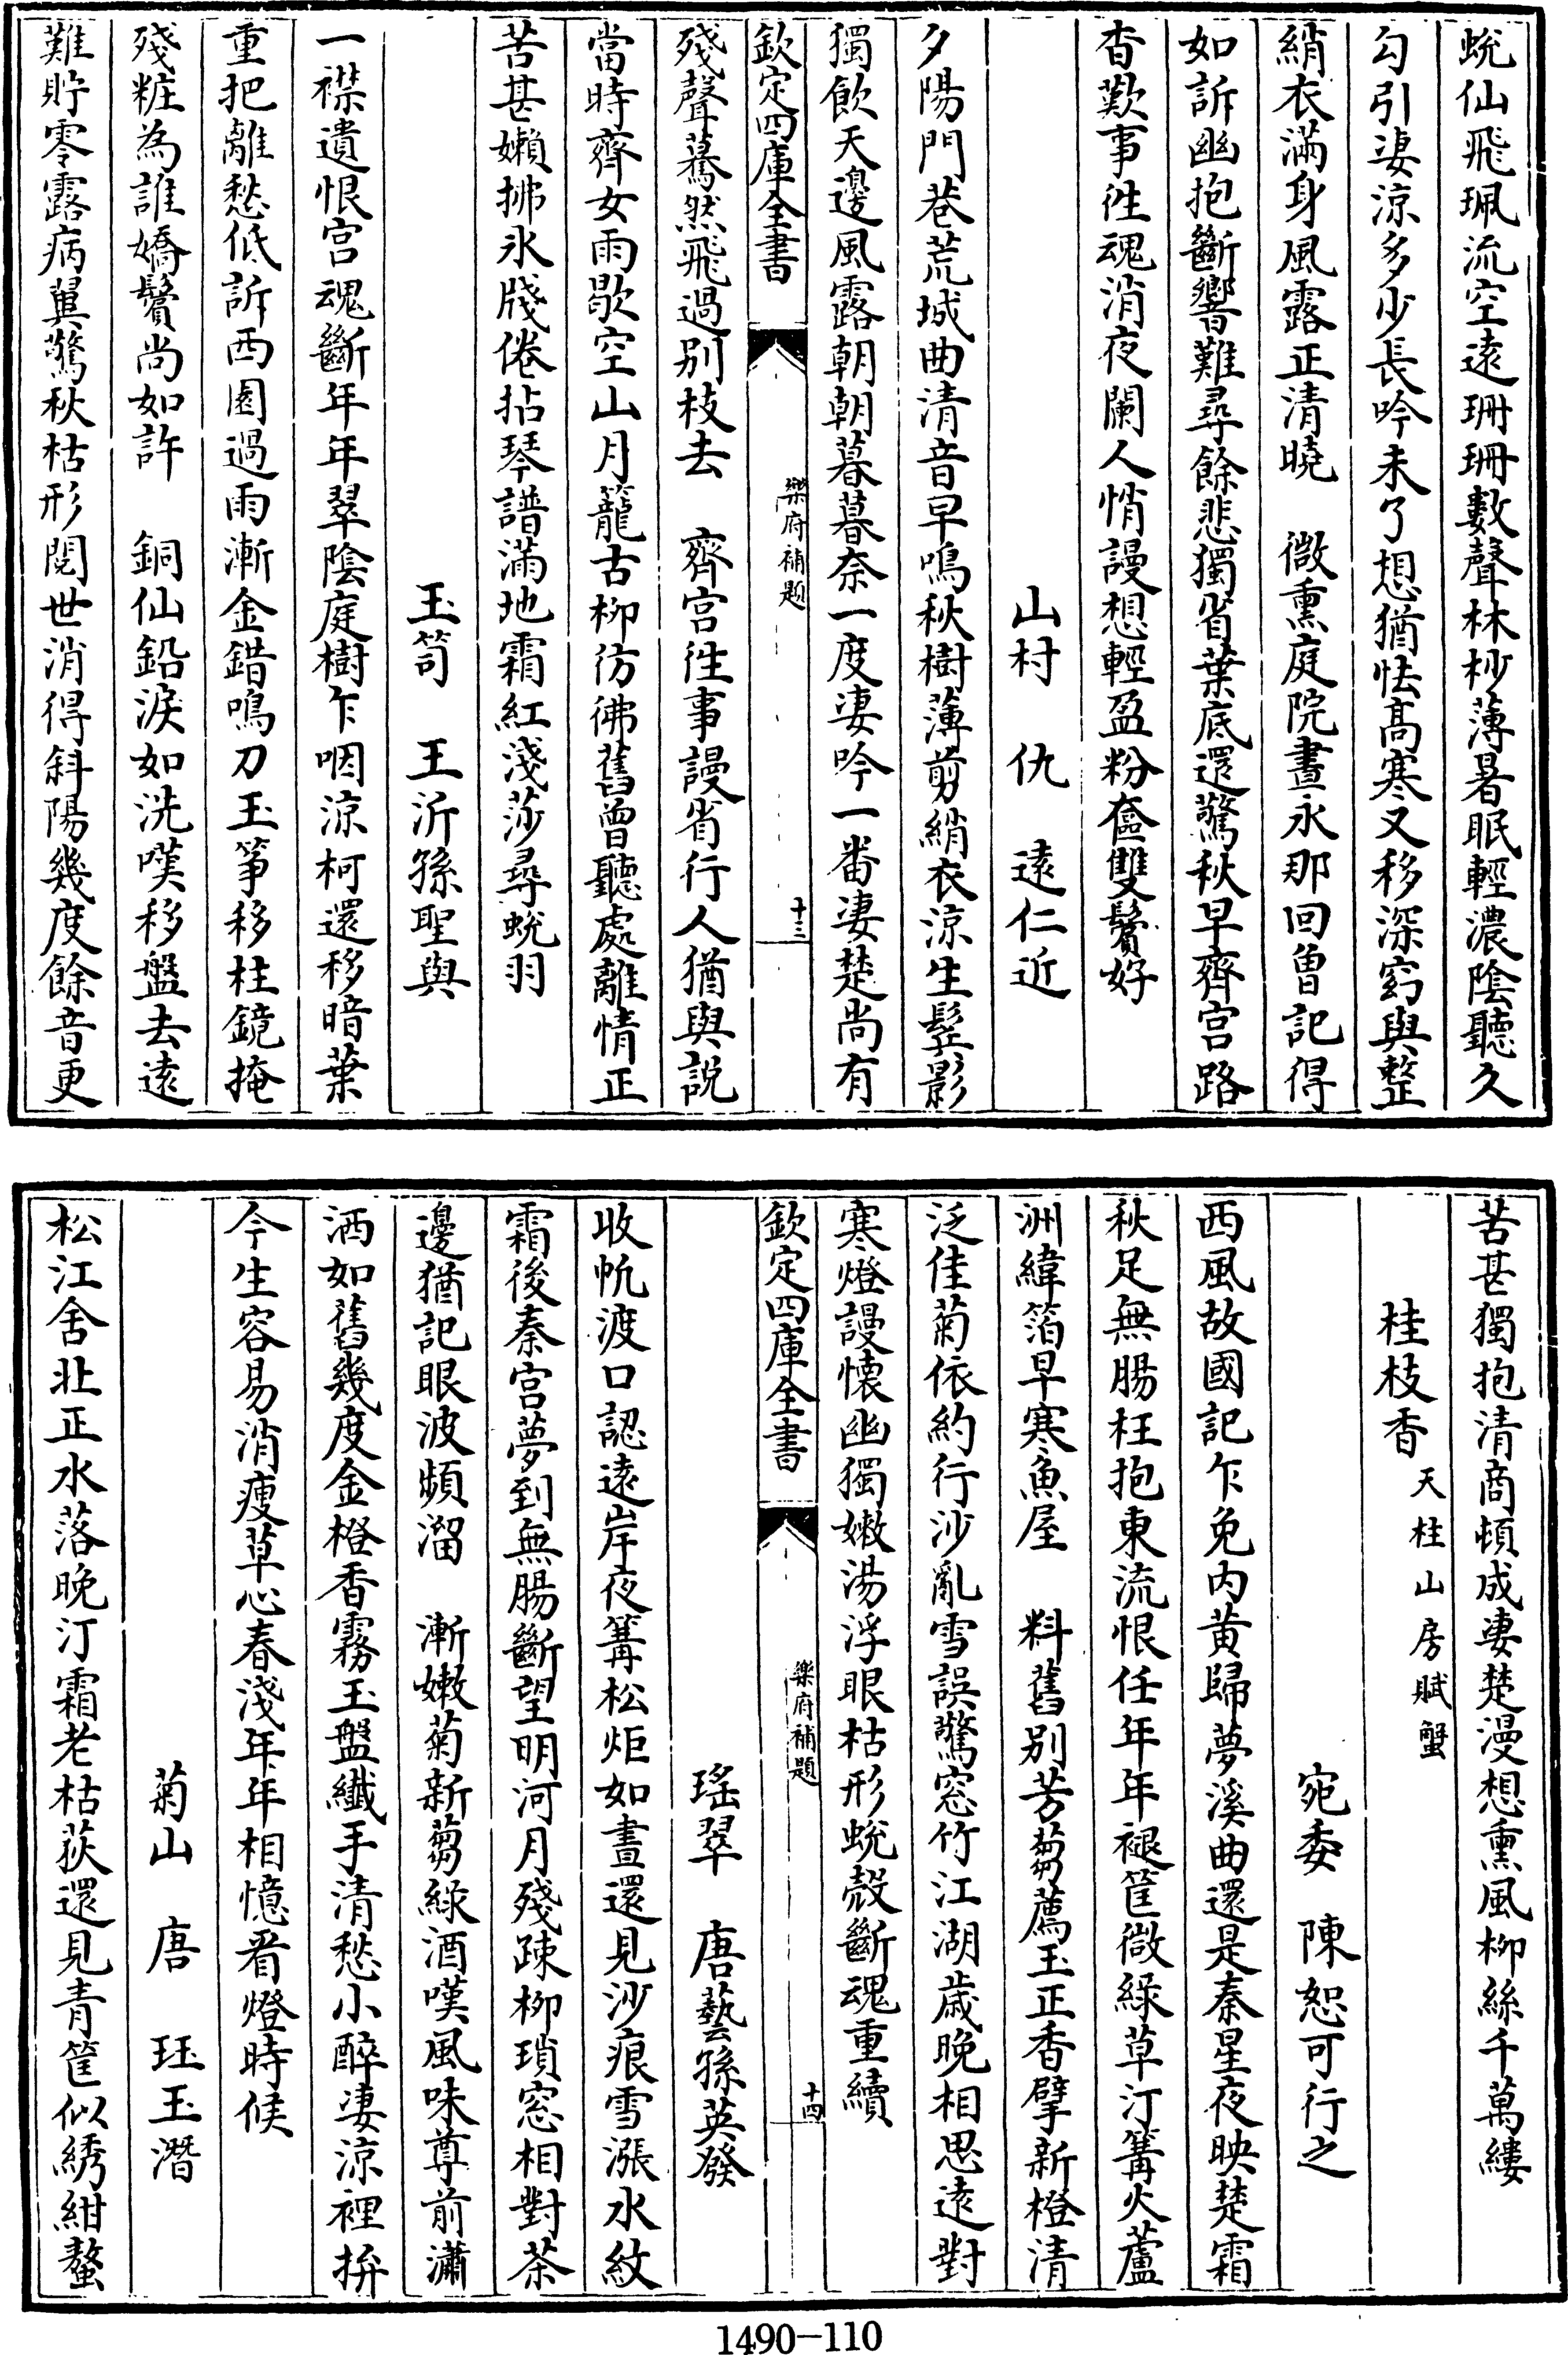 蛻仙飛珮流空遠珊珊數聲林杪薄暑眠輕濃陰聽久
勾引淒涼多少長吟未了想猶怯高寒又移深窈與整
綃衣滿身風露正清曉　微熏庭院晝永那回曾記得
如訴幽抱斷響難尋餘悲獨省葉底還驚秋早齊宮路
杳歎事徃魂消夜闌人悄謾想輕盈粉奩雙鬢好
山村　仇　遠仁近
夕陽門巷荒城曲清音早鳴秋樹薄剪綃衣涼生鬂影
獨飲天邊風露朝朝暮暮奈一度淒吟一番淒楚尚有
欽定四庫全書
樂府補題
十三
殘聲驀然飛過別枝去　齊宮徃事謾省行人猶與說
當時齊女雨歇空山月籠古柳彷彿舊曾聽處離情正
苦甚嬾拂氷牋倦拈琴譜滿地霜紅淺莎尋蛻羽
玉笥　王沂孫聖與
一襟遺恨宮魂斷年年翠陰庭樹乍咽涼柯還移暗葉
重把離愁低訴西園過雨漸金錯鳴刀玉箏移柱鏡掩
殘粧為誰嬌鬢尚如許　銅仙鉛淚如洗嘆移盤去遠
難貯零露病翼驚秋枯形閱世消得斜陽幾度餘音更
苦甚獨抱清商頓成淒楚漫想熏風柳絲千萬縷
桂枝香天柱山房賦蟹
宛委　陳恕可行之
西風故國記乍免内黃歸夢溪曲還是秦星夜映楚霜
秋足無腸枉抱東流恨任年年褪筐微綠草汀篝火蘆
洲緯箔早寒魚屋　料舊别芳蒭薦玉正香擘新橙清
泛佳菊依約行沙亂雪誤驚窓竹江湖歲晚相思遠對
寒燈謾懷幽獨嫩湯浮眼枯形蛻殼斷魂重續
欽定四庫全書
樂府補題
十四
瑤翠　唐藝孫英發
收帆渡口認遠岸夜篝松炬如晝還見沙痕雪漲水紋
霜後秦宮夢到無腸斷望明河月殘疎柳瑣窓相對茶
邊猶記眼波頻溜　漸嫩菊新蒭綠酒嘆風味尊前瀟
洒如舊幾度金橙香霧玉盤纖手清愁小醉淒涼裡拚
今生容易消瘦草心春淺年年相憶看燈時候
菊山　唐　珏玉潛
松江舍北正水落晚汀霜老枯荻還見青筐似綉紺螯
1490-110